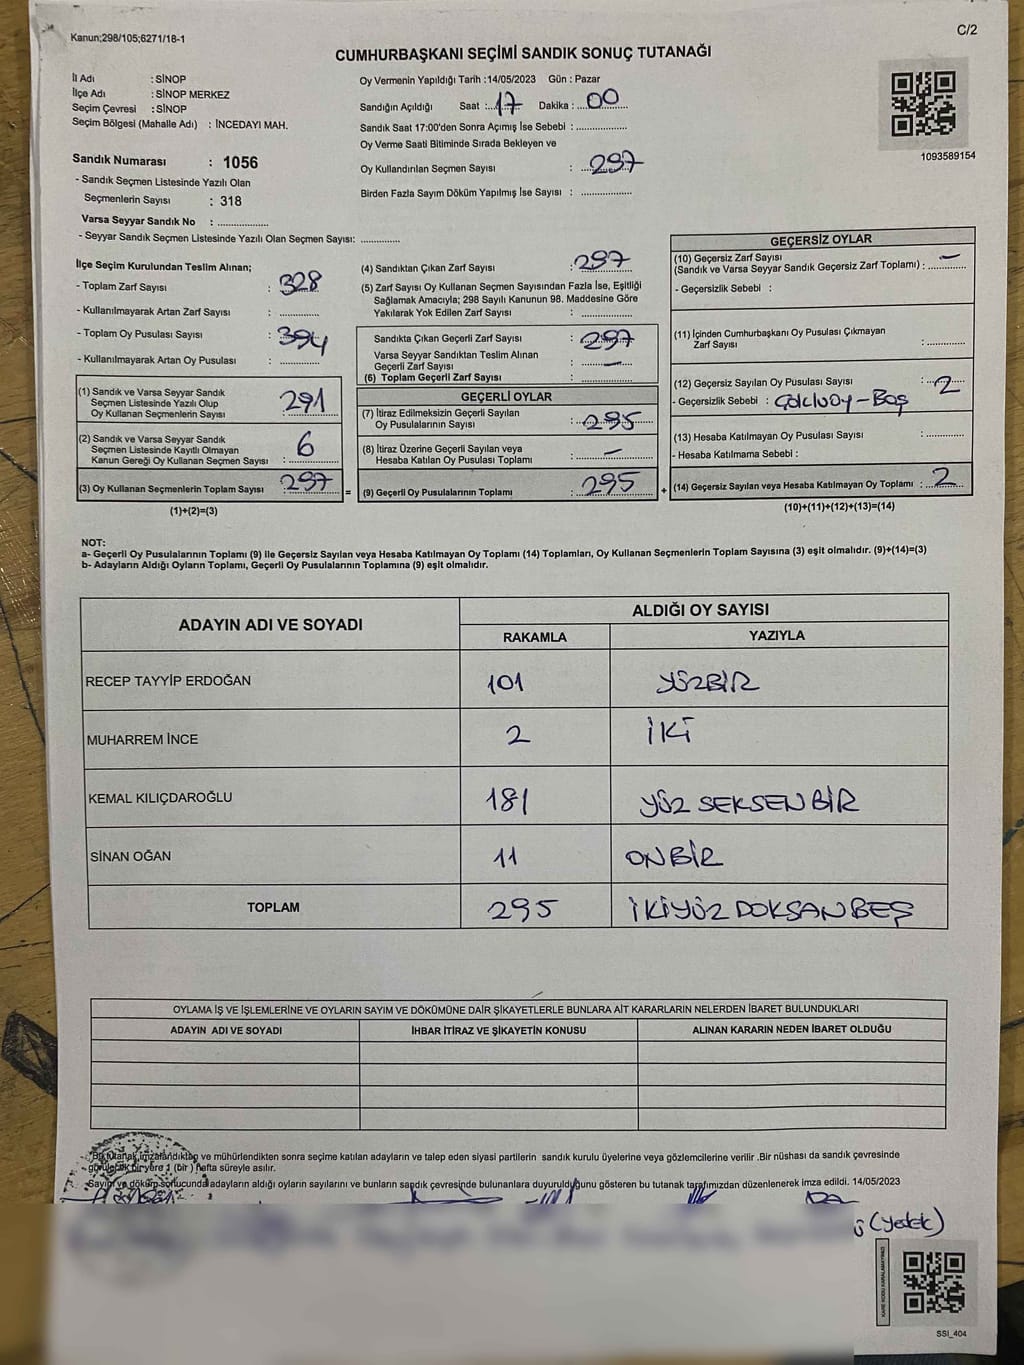 Kanun;298/105;6271/18-1
C/2
CUMHURBAŞKANI SEÇİMİ SANDIK SONUÇ TUTANAĞI
İl Adı : SİNOP
İlçe Adı : SİNOP MERKEZ
Seçim Çevresi : SİNOP
Seçim Bölgesi (Mahalle Adı) : İNCEDAYI MAH.
Sandık Numarası : 1056
- Sandık Seçmen Listesinde Yazılı Olan
Seçmenlerin Sayısı : 318
Varsa Seyyar Sandık No : ..................
- Seyyar Sandık Seçmen Listesinde Yazılı Olan Seçmen Sayısı: .............
Oy Vermenin Yapıldığı Tarih :14/05/2023 Gün : Pazar
Sandığın Açıldığı Saat :..17 Dakika : 00
Sandık Saat 17:00'den Sonra Açımış İse Sebebi : ..................
Oy Verme Saati Bitiminde Sırada Bekleyen ve
Oy Kullandırılan Seçmen Sayısı : 297
Birden Fazla Sayım Döküm Yapılmış İse Sayısı : ..................
1093589154
İlçe Seçim Kurulundan Teslim Alınan;
- Toplam Zarf Sayısı : 328
- Kullanılmayarak Artan Zarf Sayısı : .............
- Toplam Oy Pusulası Sayısı : 394
- Kullanılmayarak Artan Oy Pusulası : .............
(1) Sandık ve Varsa Seyyar Sandık
Seçmen Listesinde Yazılı Olup
Oy Kullanan Seçmenlerin Sayısı : 291
(2) Sandık ve Varsa Seyyar Sandık
Seçmen Listesinde Kayıtlı Olmayan
Kanun Gereği Oy Kullanan Seçmen Sayısı : 6
(3) Oy Kullanan Seçmenlerin Toplam Sayısı : 297 =
(1)+(2)=(3)
(4) Sandıktan Çıkan Zarf Sayısı : 297
(5) Zarf Sayısı Oy Kullanan Seçmen Sayısından Fazla İse, Eşitliği
Sağlamak Amacıyla; 298 Sayılı Kanunun 98. Maddesine Göre
Yakılarak Yok Edilen Zarf Sayısı : ..................
Sandıkta Çıkan Geçerli Zarf Sayısı : 297
Varsa Seyyar Sandıktan Teslim Alınan
Geçerli Zarf Sayısı : —
(6) Toplam Geçerli Zarf Sayısı : ..................
GEÇERLİ OYLAR
(7) İtiraz Edilmeksizin Geçerli Sayılan
Oy Pusulalarının Sayısı : 295
(8) İtiraz Üzerine Geçerli Sayılan veya
Hesaba Katılan Oy Pusulası Toplamı : —
(9) Geçerli Oy Pusulalarının Toplamı : 295 +
GEÇERSİZ OYLAR
(10) Geçersiz Zarf Sayısı
(Sandık ve Varsa Seyyar Sandık Geçersiz Zarf Toplamı) : —
- Geçersizlik Sebebi :
(11) İçinden Cumhurbaşkanı Oy Pusulası Çıkmayan
Zarf Sayısı : .............
(12) Geçersiz Sayılan Oy Pusulası Sayısı : 2
- Geçersizlik Sebebi : ÇOKLU OY - BOŞ
(13) Hesaba Katılmayan Oy Pusulası Sayısı : .............
- Hesaba Katılmama Sebebi :
(14) Geçersiz Sayılan veya Hesaba Katılmayan Oy Toplamı : 2
(10)+(11)+(12)+(13)=(14)
NOT:
a- Geçerli Oy Pusulalarının Toplamı (9) ile Geçersiz Sayılan veya Hesaba Katılmayan Oy Toplamı (14) Toplamları, Oy Kullanan Seçmenlerin Toplam Sayısına (3) eşit olmalıdır. (9)+(14)=(3)
b- Adayların Aldığı Oyların Toplamı, Geçerli Oy Pusulalarının Toplamına (9) eşit olmalıdır.
ADAYIN ADI VE SOYADI ALDIĞI OY SAYISI
RAKAMLA YAZIYLA
RECEP TAYYİP ERDOĞAN 101 YÜZBİR
MUHARREM İNCE 2 İKİ
KEMAL KILIÇDAROĞLU 181 YÜZ SEKSEN BİR
SİNAN OĞAN 11 ONBİR
TOPLAM 295 İKİYÜZ DOKSAN BEŞ
OYLAMA İŞ VE İŞLEMLERİNE VE OYLARIN SAYIM VE DÖKÜMÜNE DAİR ŞİKAYETLERLE BUNLARA AİT KARARLARIN NELERDEN İBARET BULUNDUKLARI
ADAYIN ADI VE SOYADI İHBAR İTİRAZ VE ŞİKAYETİN KONUSU ALINAN KARARIN NEDEN İBARET OLDUĞU
Bu tutanak imzalandıktan ve mühürlendikten sonra seçime katılan adayların ve talep eden siyasi partilerin sandık kurulu üyelerine veya gözlemcilerine verilir .Bir nüshası da sandık çevresinde
görülebilir bir yere 1 (bir ) hafta süreyle asılır.
Sayım ve döküm sonucunda adayların aldığı oyların sayılarını ve bunların sandık çevresinde bulunanlara duyurulduğunu gösteren bu tutanak tarafımızdan düzenlenerek imza edildi. 14/05/2023
(Yedek)
KARE KODU KARALAMAYINIZ!
SSI_404